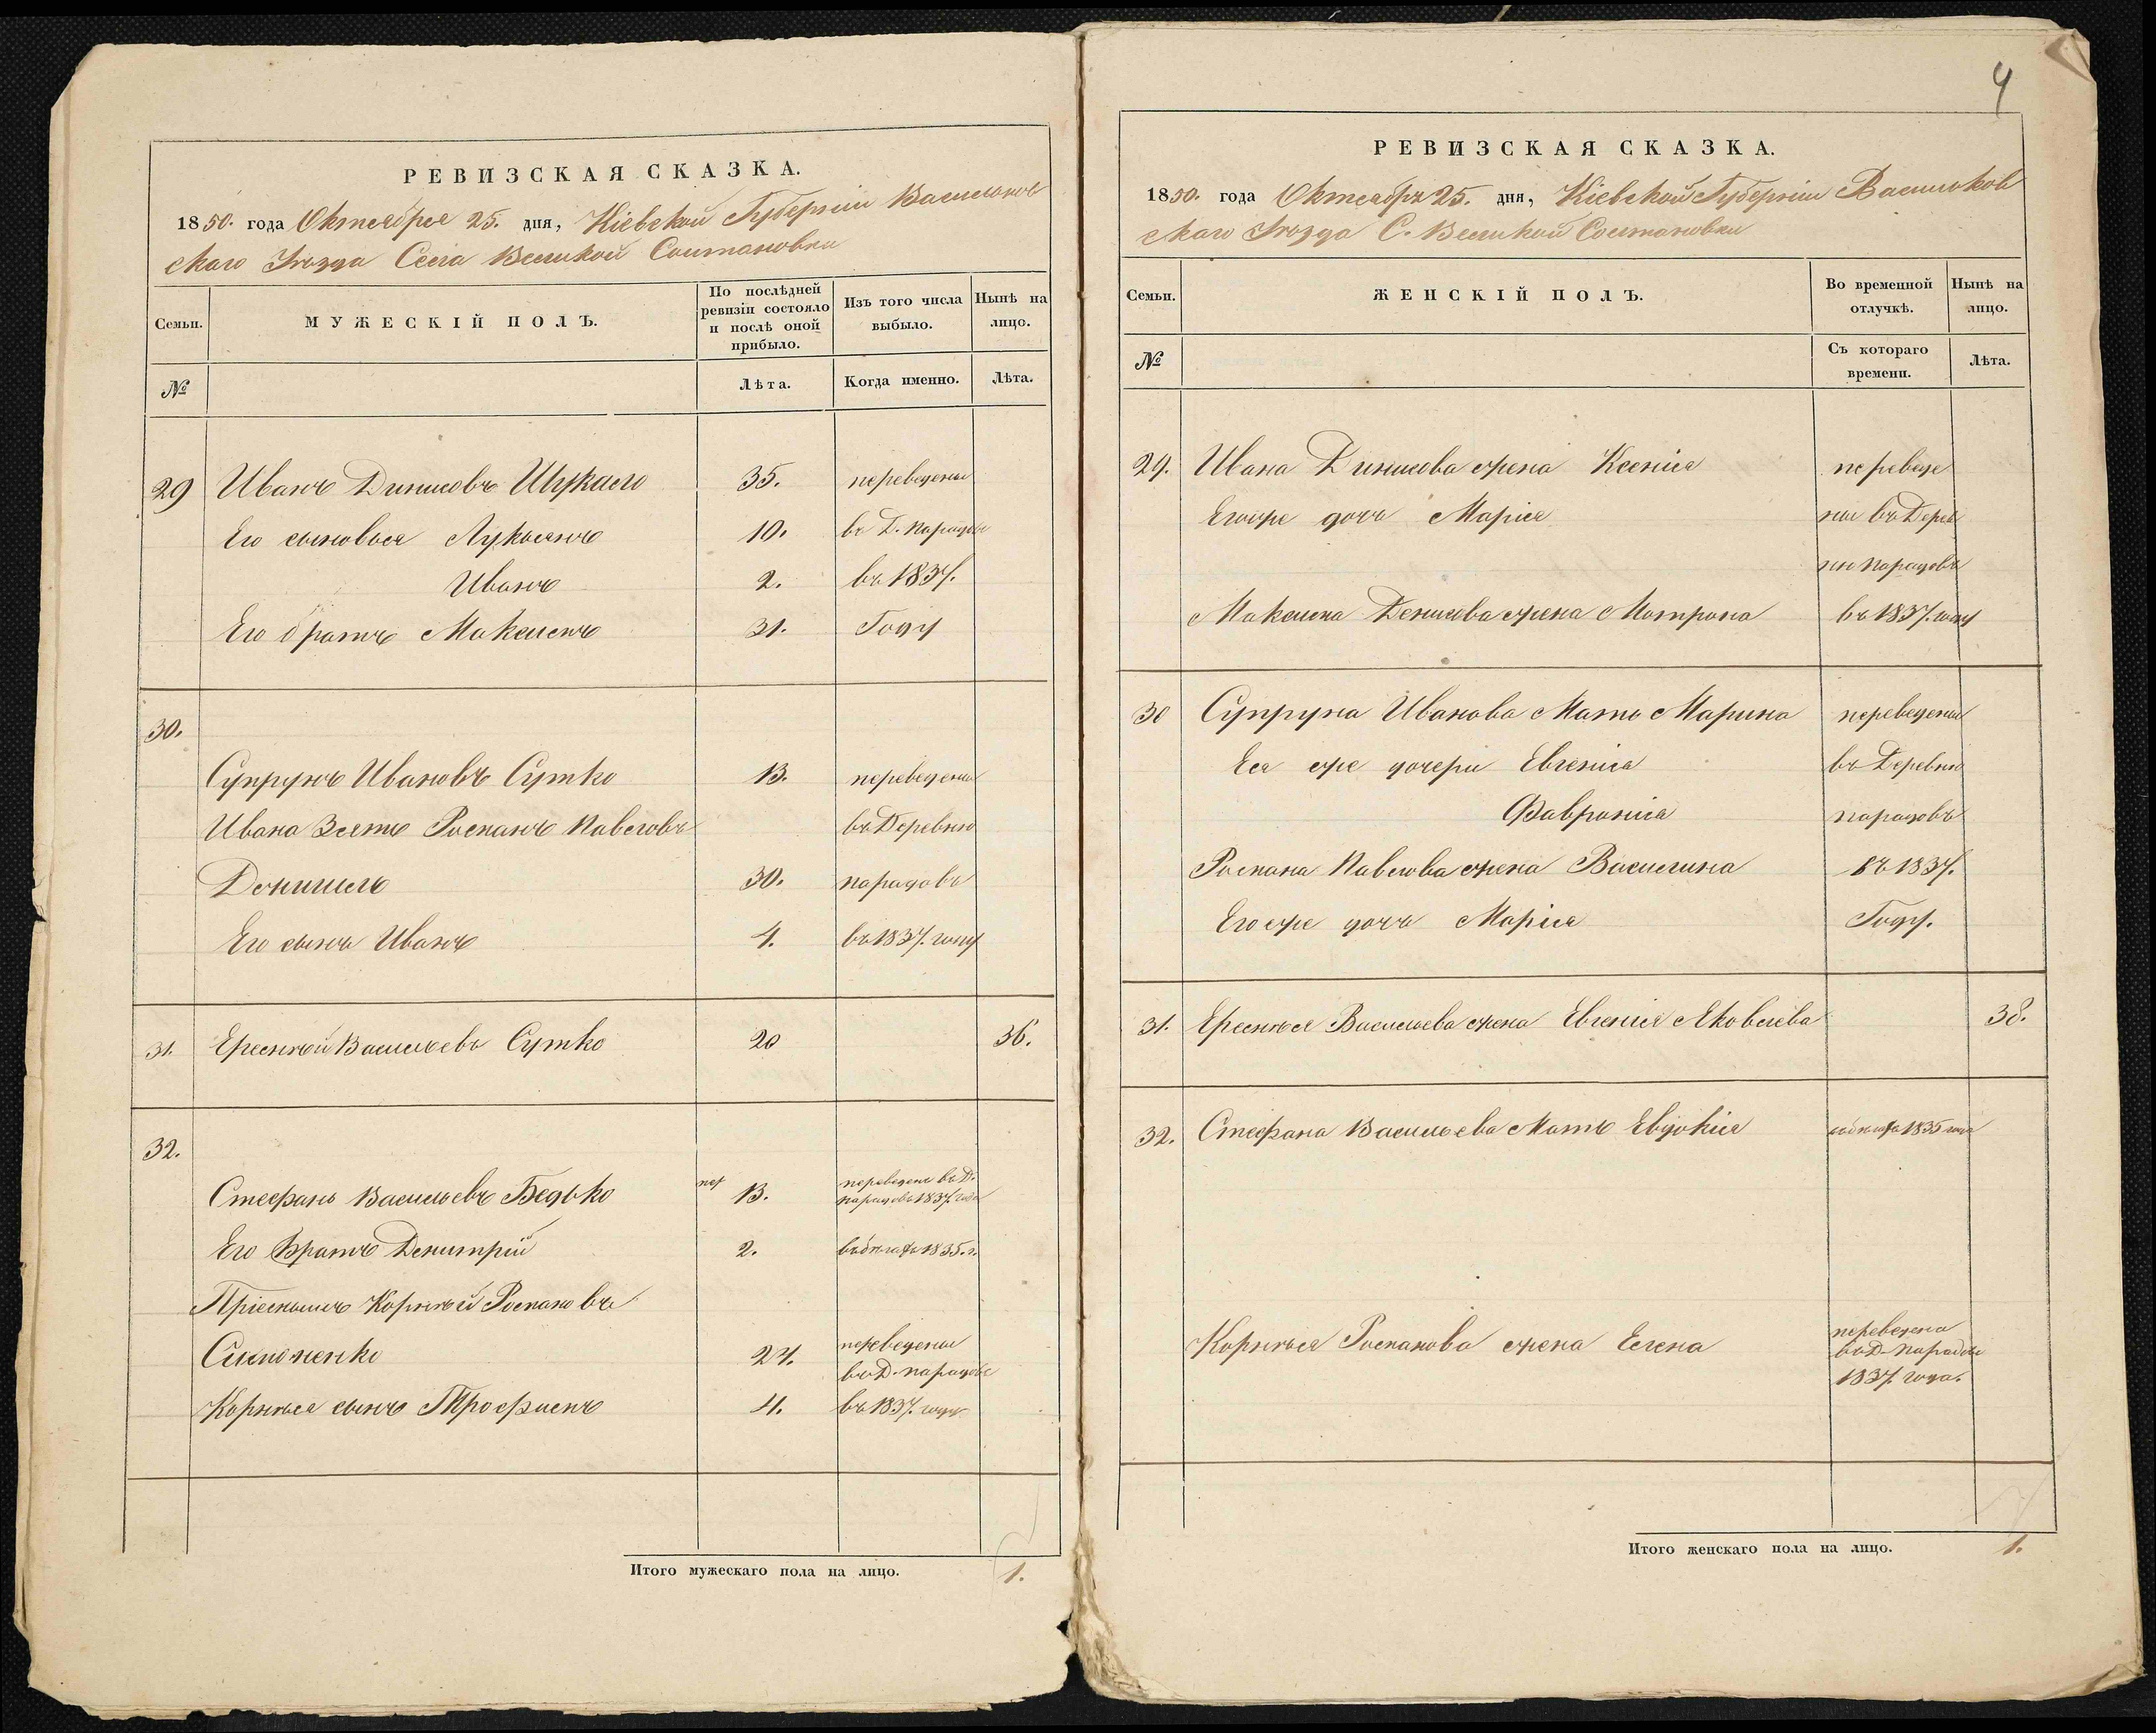 РЕВИЗСКАЯ СКАЗКА.
1850. года Октября 25. дня, Кіевской Губерніи Васильков
скаго Уѣзда Села Великой Солтановки
Семьи.
МУЖЕСКІЙ ПОЛЪ.
По послѣдней ревизіи состояло и послѣ оной прибыло.
Изъ того числа выбыло.
Нынѣ на лицо.
№
Лѣта.
Когда именно.
Лѣта.
29 Иванъ Динисовъ 35. переведены
Его сыновья Лукьянъ 10. въ Д. Парадовъ
Иванъ 2. въ 1837.
Его братъ Максимъ 31. Году
30.
Супрунъ Ивановъ Сутко 13. переведены
Ивана Зять Романъ Павловъ въ Деревню
30. парадовъ
Его сынъ Иванъ 4. въ 1837. году
31. Еремѣй Васильевъ Сутко 20 36.
32.
Стефанъ Васильевъ Бедько пер 13. переведенъ въ Д. парадовъ 1837. года
Его Братъ Демитрій 2. въ бѣгахъ 1835. г.
Пріемышъ Корнѣй Романовъ
Симоненко 24. переведены въ Д. парадовъ
Корнѣя сынъ Трофимъ 4. въ 1837. году
Итого мужескаго пола на лицо. 1.
4
РЕВИЗСКАЯ СКАЗКА.
1850. года Октября 25. дня, Кіевской Губерніи Васильков
скаго Уѣзда С. Великой Солтановки
Семьи.
ЖЕНСКІЙ ПОЛЪ.
Во временной отлучкѣ.
Нынѣ на лицо.
№
Съ котораго времени.
Лѣта.
29. Ивана Динисова жена Ксенія переведе
Егоже дочь Марія ны въ Дерев
ню парадовъ
Максима Денисова жена Матрона въ 1837. году
30 Супруна Иванова Мать Марина переведены
Ея же дочери Евгенія въ Деревню
Февронія парадовъ
Романа Павлова жена Василина въ 1837.
Егоже дочь Марія Году.
31. Еремѣя Васильева жена Евгенія Яковлева 38.
32. Стефана Васильева Мать Евдокія въ бѣгахъ 1835 года
Корнѣя Романова жена Елена переведена
въ Д. парадовъ
1837. года.
Итого женскаго пола на лицо. 1.